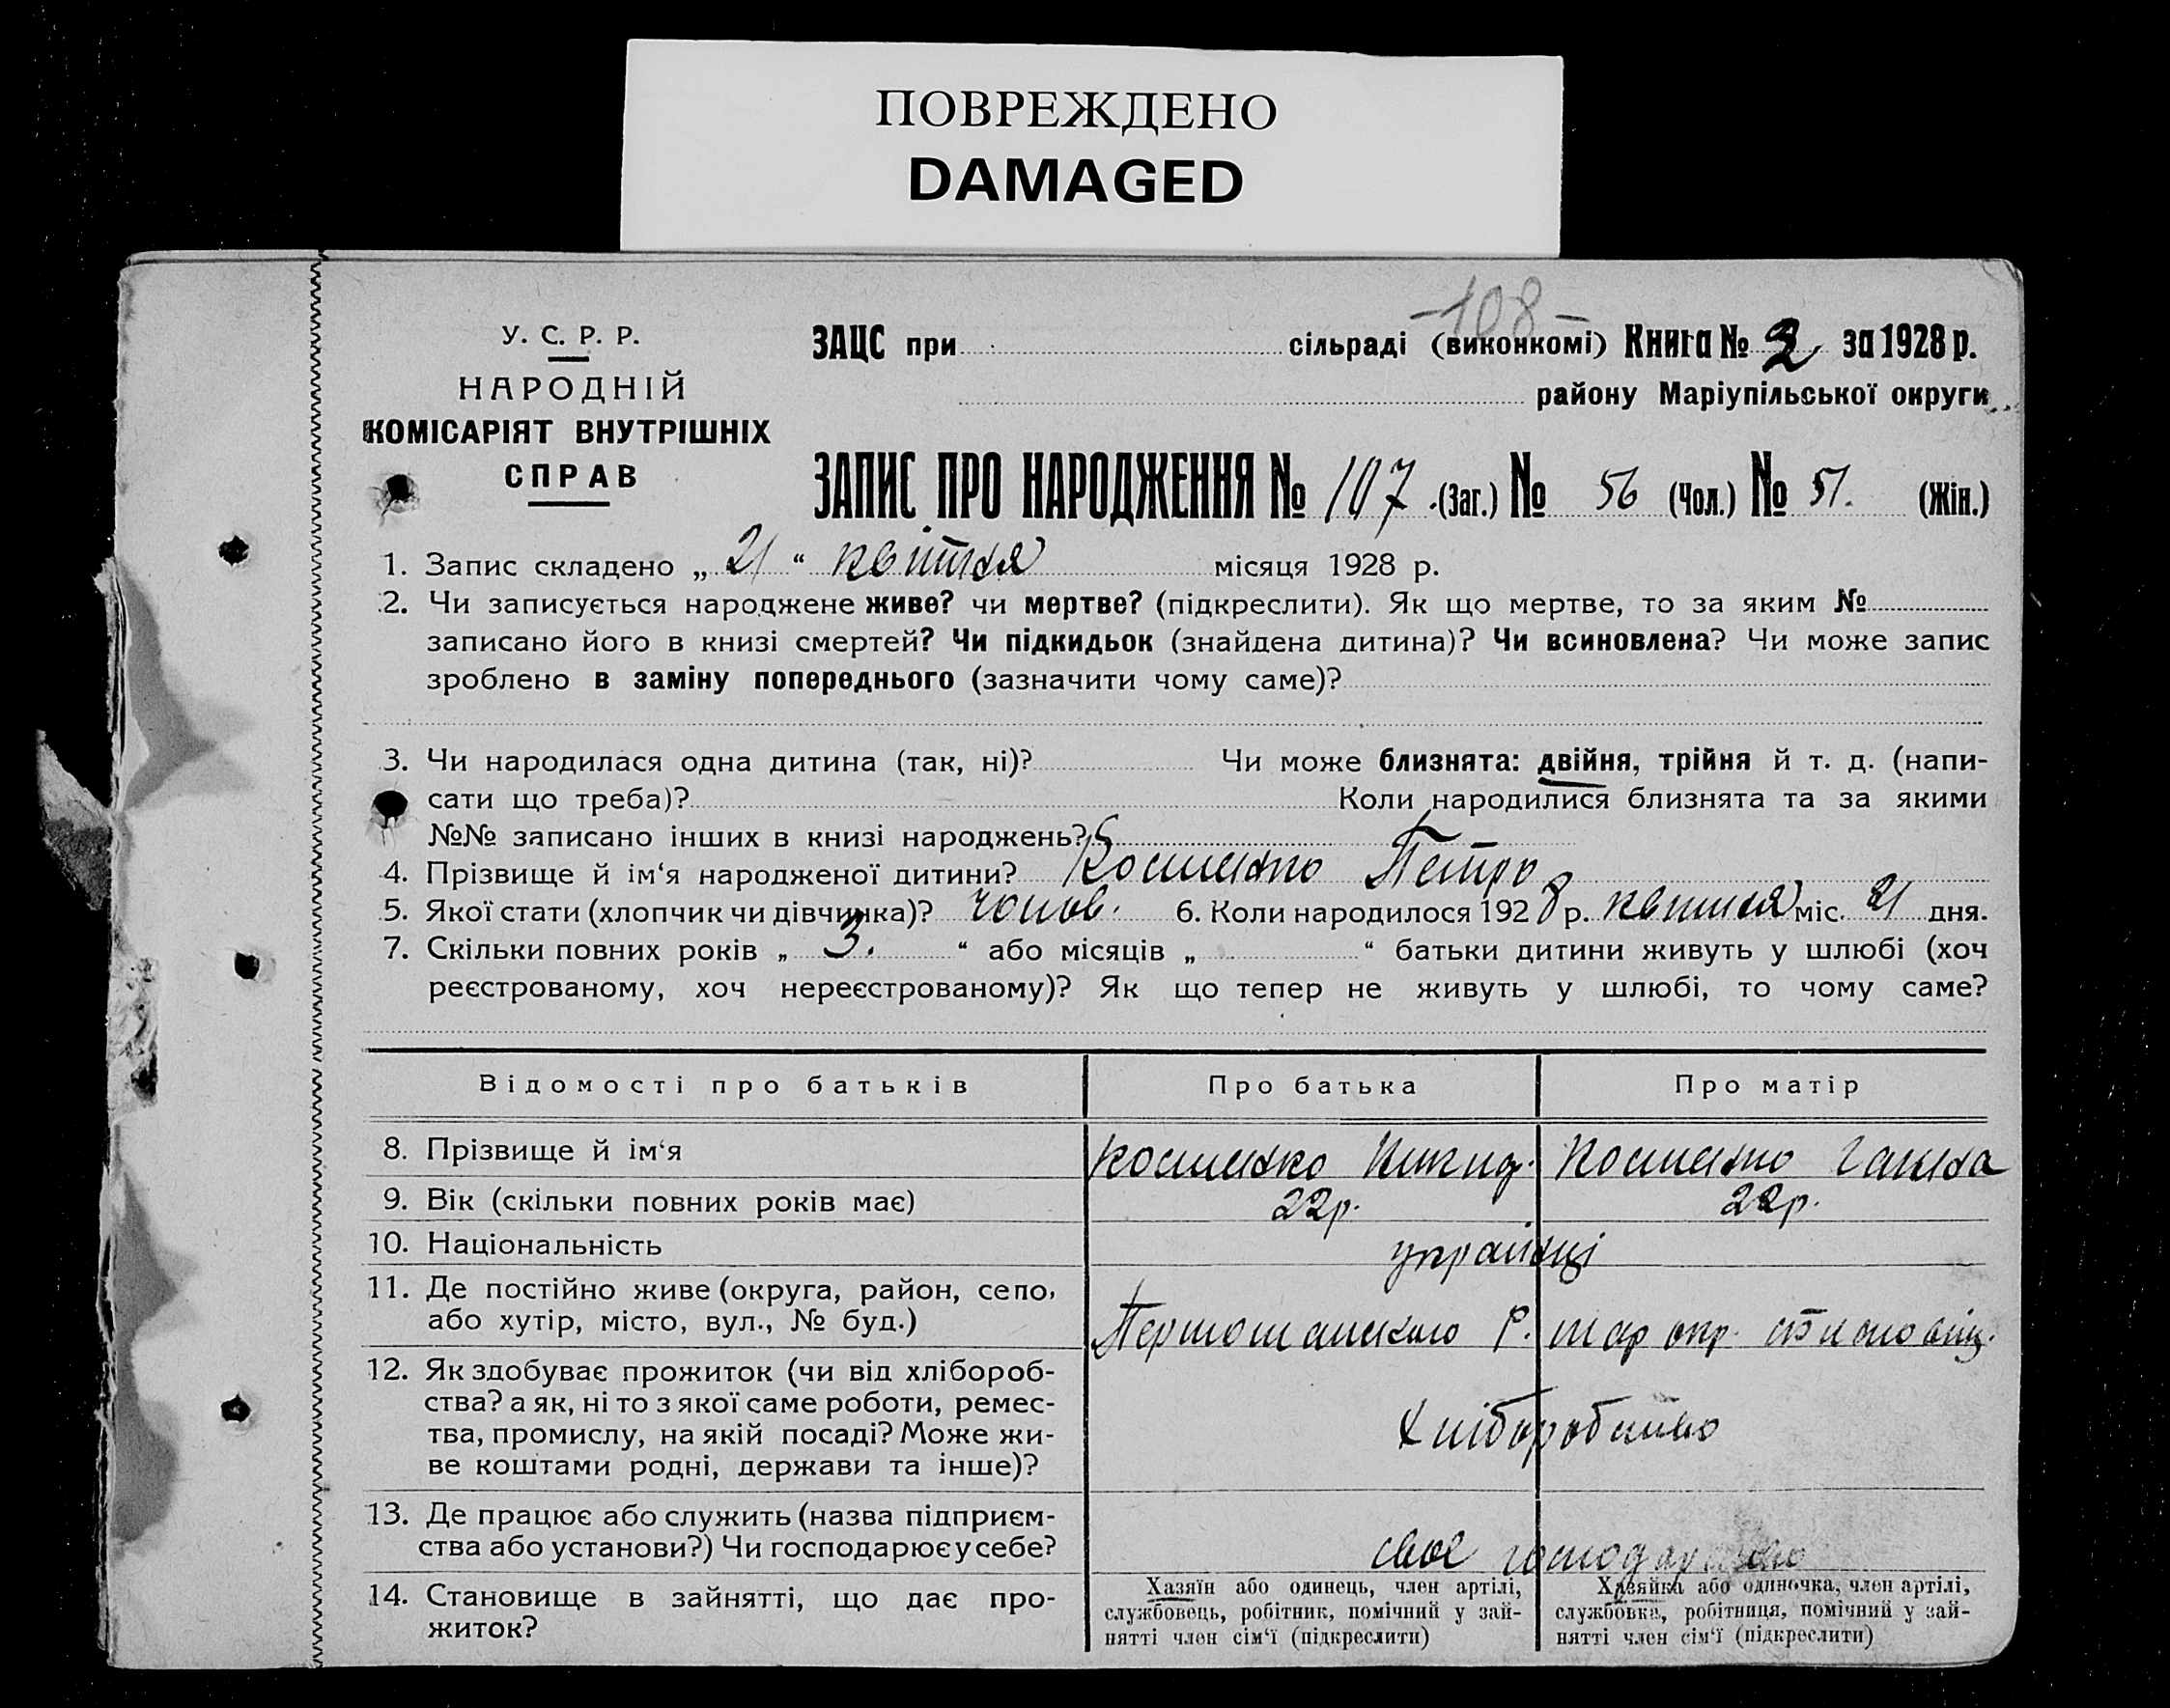 ПОВРЕЖДЕНО
DAMAGED
-108-
У. С. Р. Р.
НАРОДНІЙ
КОМІСАРІЯТ ВНУТРІШНІХ
СПРАВ
ЗАЦС при сільраді (виконкомі) Книга № 2 за 1928 р.
району Маріупільської округи
ЗАПИС ПРО НАРОДЖЕННЯ № 107 (Заг.) № 56 (Чол.) № 51. (Жін.)
1. Запис складено „ 21 “ квітня місяця 1928 р.
2. Чи записується народжене живе? чи мертве? (підкреслити). Як що мертве, то за яким №
записано його в книзі смертей? Чи підкидьок (знайдена дитина)? Чи всиновлена? Чи може запис
зроблено в заміну попереднього (зазначити чому саме)?
3. Чи народилася одна дитина (так, ні)? Чи може близнята: двійня, трійня й т. д. (напи-
сати що треба)? Коли народилися близнята та за якими
№№ записано інших в книзі народжень?
4. Прізвище й ім‘я народженої дитини? Костенко Петро
5. Якої стати (хлопчик чи дівчинка)? чолов. 6. Коли народилося 1928 р. квітня міс. 21 дня.
7. Скільки повних років „ 3. “ або місяців „ “ батьки дитини живуть у шлюбі (хоч
реєстрованому, хоч нереєстрованому)? Як що тепер не живуть у шлюбі, то чому саме?
Відомості про батьків Про батька Про матір
8. Прізвище й ім‘я Костенко Костенко Ганна
9. Вік (скільки повних років має) 22р. 22р.
10. Національність українці
11. Де постійно живе (округа, район, село,
або хутір, місто, вул., № буд.) Р. мар окр.
12. Як здобуває прожиток (чи від хлібороб-
ства? а як, ні то з якої саме роботи, ремес-
тва, промислу, на якій посаді? Може жи-
ве коштами родні, держави та інше)?
Хліборобство
13. Де працює або служить (назва підприєм-
ства або установи?) Чи господарює у себе? своє господарство
14. Становище в зайнятті, що дає про-
житок?
Хазяїн або одинець, член артілі,
службовець, робітник, помічний у зай-
нятті член сім‘ї (підкреслити)
Хазяйка або одиночка, член артілі,
службовка, робітниця, помічний у зай-
нятті член сім‘ї (підкреслити)